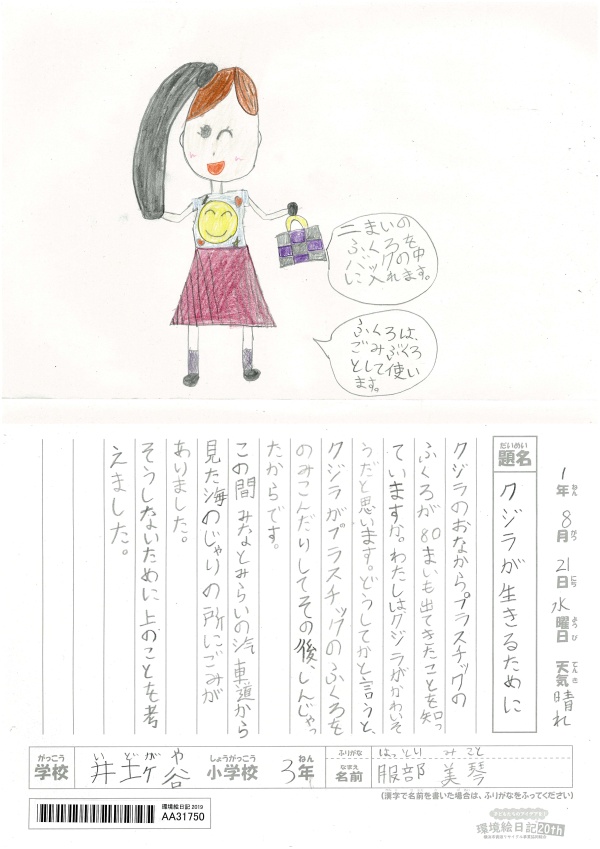 二まいの
ふくろを
バックの中
に入れます。
ふくろは、
ごみぶくろ
として使い
ます。
1年 8月 21日 水曜日 天気 晴れ
ねん がつ にち ようび てんき
だいめい
題名
クジラが生きるために
クジラのおなからプラスチックの
ふくろが80まいも出てきたことを知っ
ていますか。わたしはクジラがかわいそ
うだと思います。どうしてかと言うと、
クジラがプラスチックのふくろを
のみこんだりしてその後、しんじゃっ
たからです。
この間みなとみらいの汽車道から
見た海のじゃりの所にごみが
ありました。
そうしないために上のことを考
えました。
がっこう
学校
いどがや
井土ヶ谷
しょうがっこう
小学校
3年
ねん
ふりがな
はっとり みこと
なまえ
名前
服部 美琴
(漢字で名前を書いた場合は、ふりがなをふってください)
環境絵日記2019
AA31750
環境絵日記20th